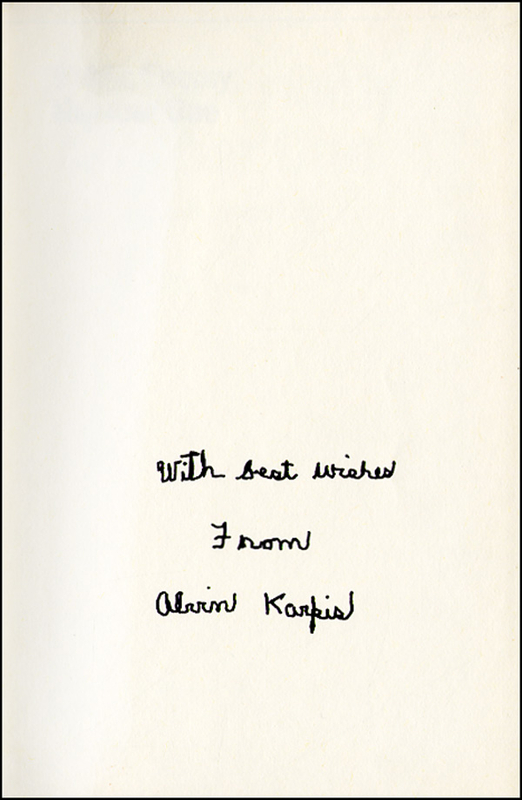 With best wishes
From
Alvin Karpis